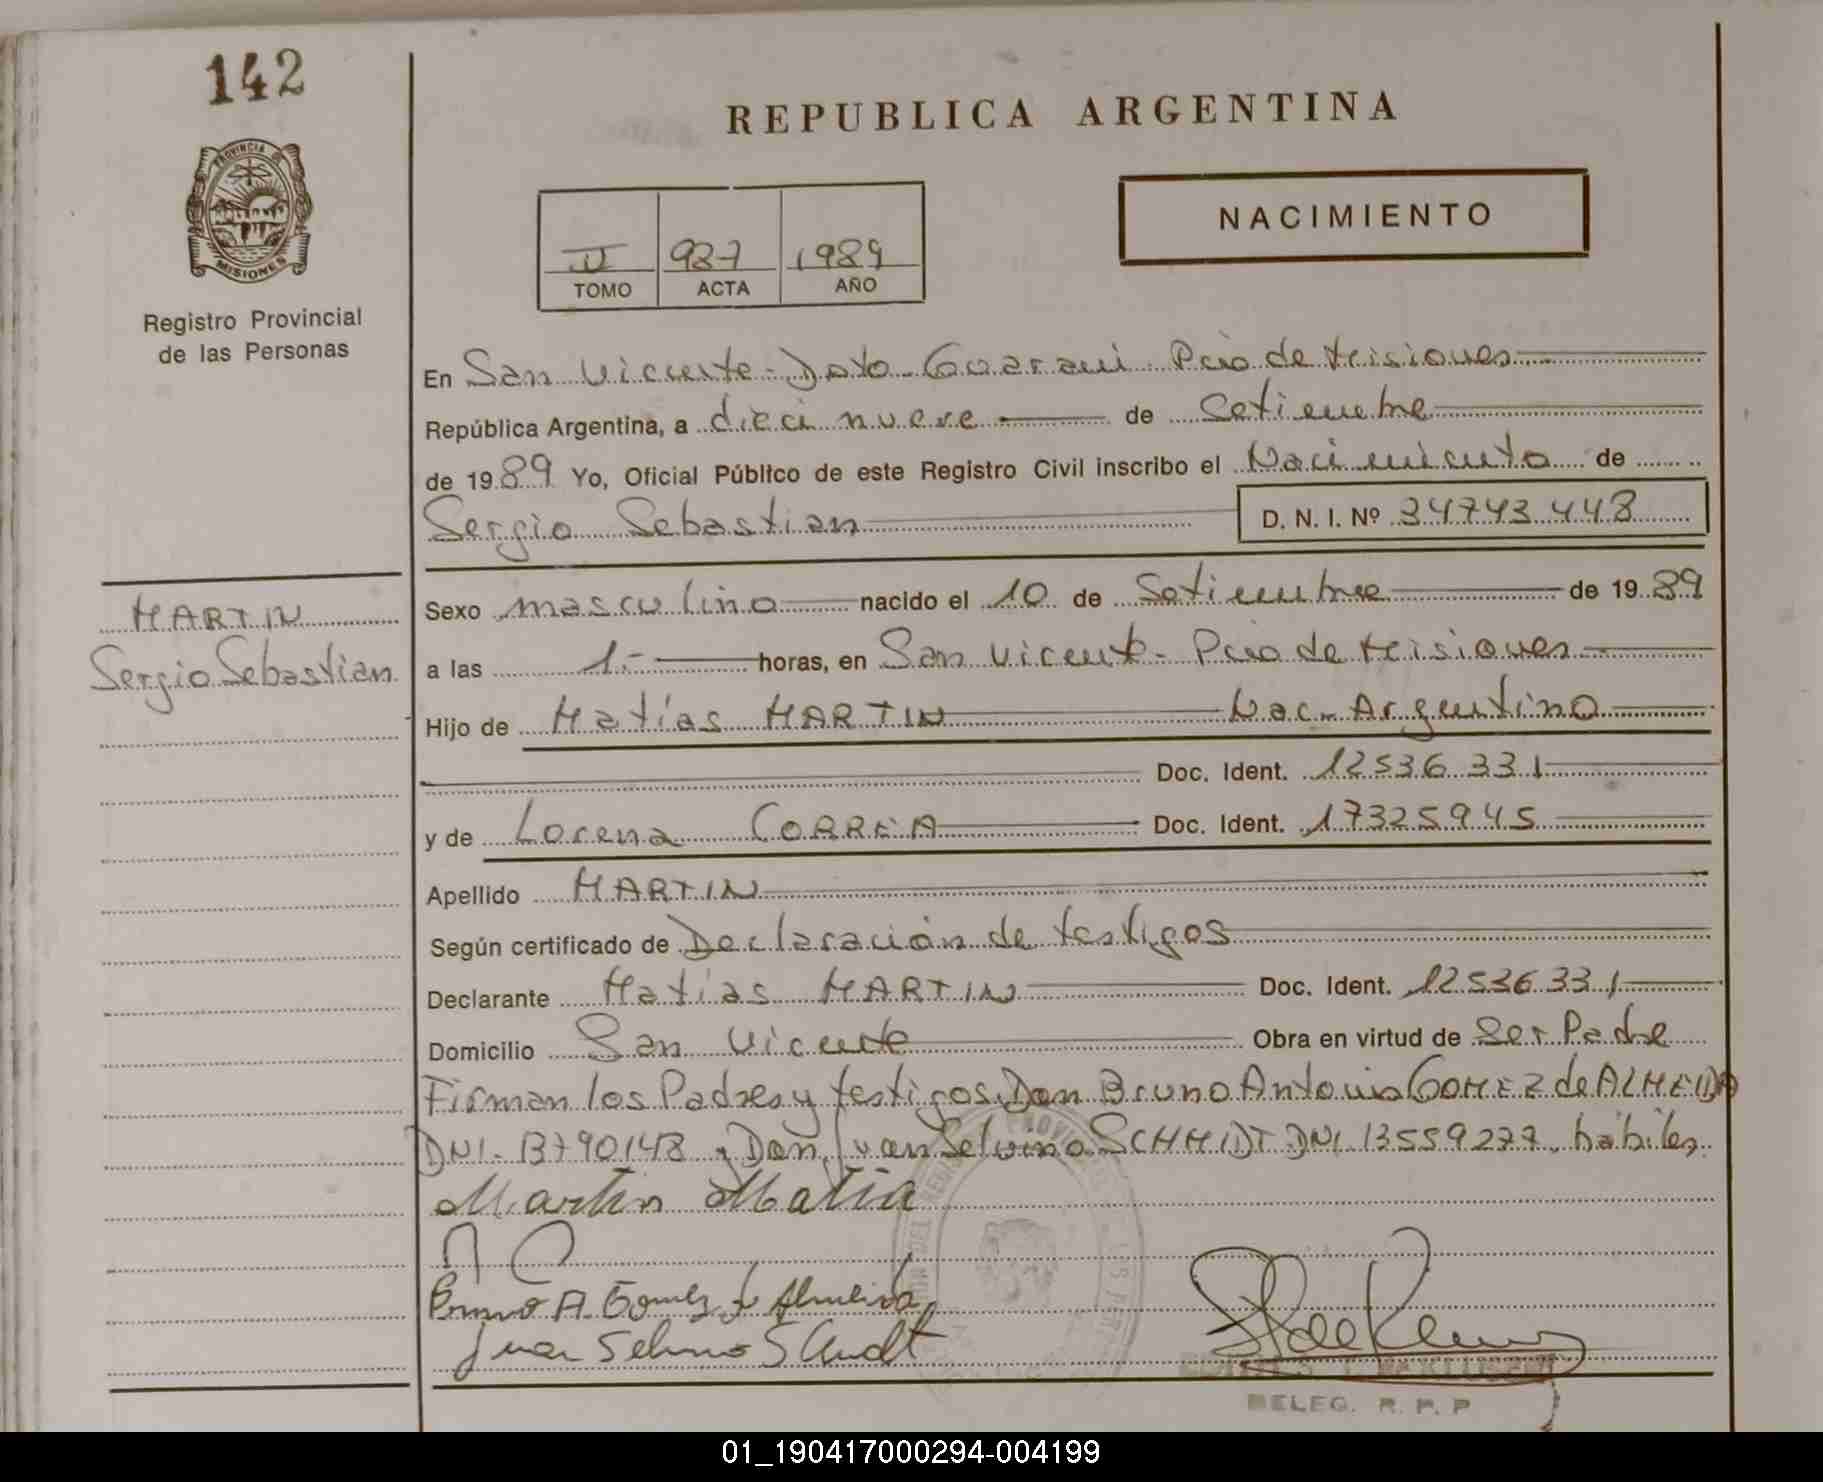 142
REPUBLICA ARGENTINA
PROVINCIA DE
MISIONES
NACIMIENTO
II 987 1989
TOMO ACTA AÑO
Registro Provincial
de las Personas
En San Vicente - Dpto Guarani - Pcia de Misiones
República Argentina, a dieci nueve de Setiembre
de 1989 Yo, Oficial Público de este Registro Civil inscribo el Nacimiento de
Sergio Sebastian D. N. I. Nº 34743448
MARTIN
Sergio Sebastian
Sexo masculino nacido el 10 de Setiembre de 1989
a las 1.- horas, en San Vicente - Pcia de Misiones
Hijo de Matías MARTIN Nac. Argentino
Doc. Ident. 12536331
y de Lorena CORREA Doc. Ident. 17325945
Apellido MARTIN
Según certificado de Declaración de testigos
Declarante Matias MARTIN Doc. Ident. 12536331
Domicilio San Vicente Obra en virtud de Ser Padre
Firman los Padres y testigos Don Bruno Antonio GOMEZ de ALMEIDA
DNI. 13790148 y Don Juan Selvino SCHMIDT DNI. 13559277, hábiles.
Martin Matia
Bruno A. Gomez d Almeida
Juan Selvino
DELEG. R. P. P
01_190417000294-004199